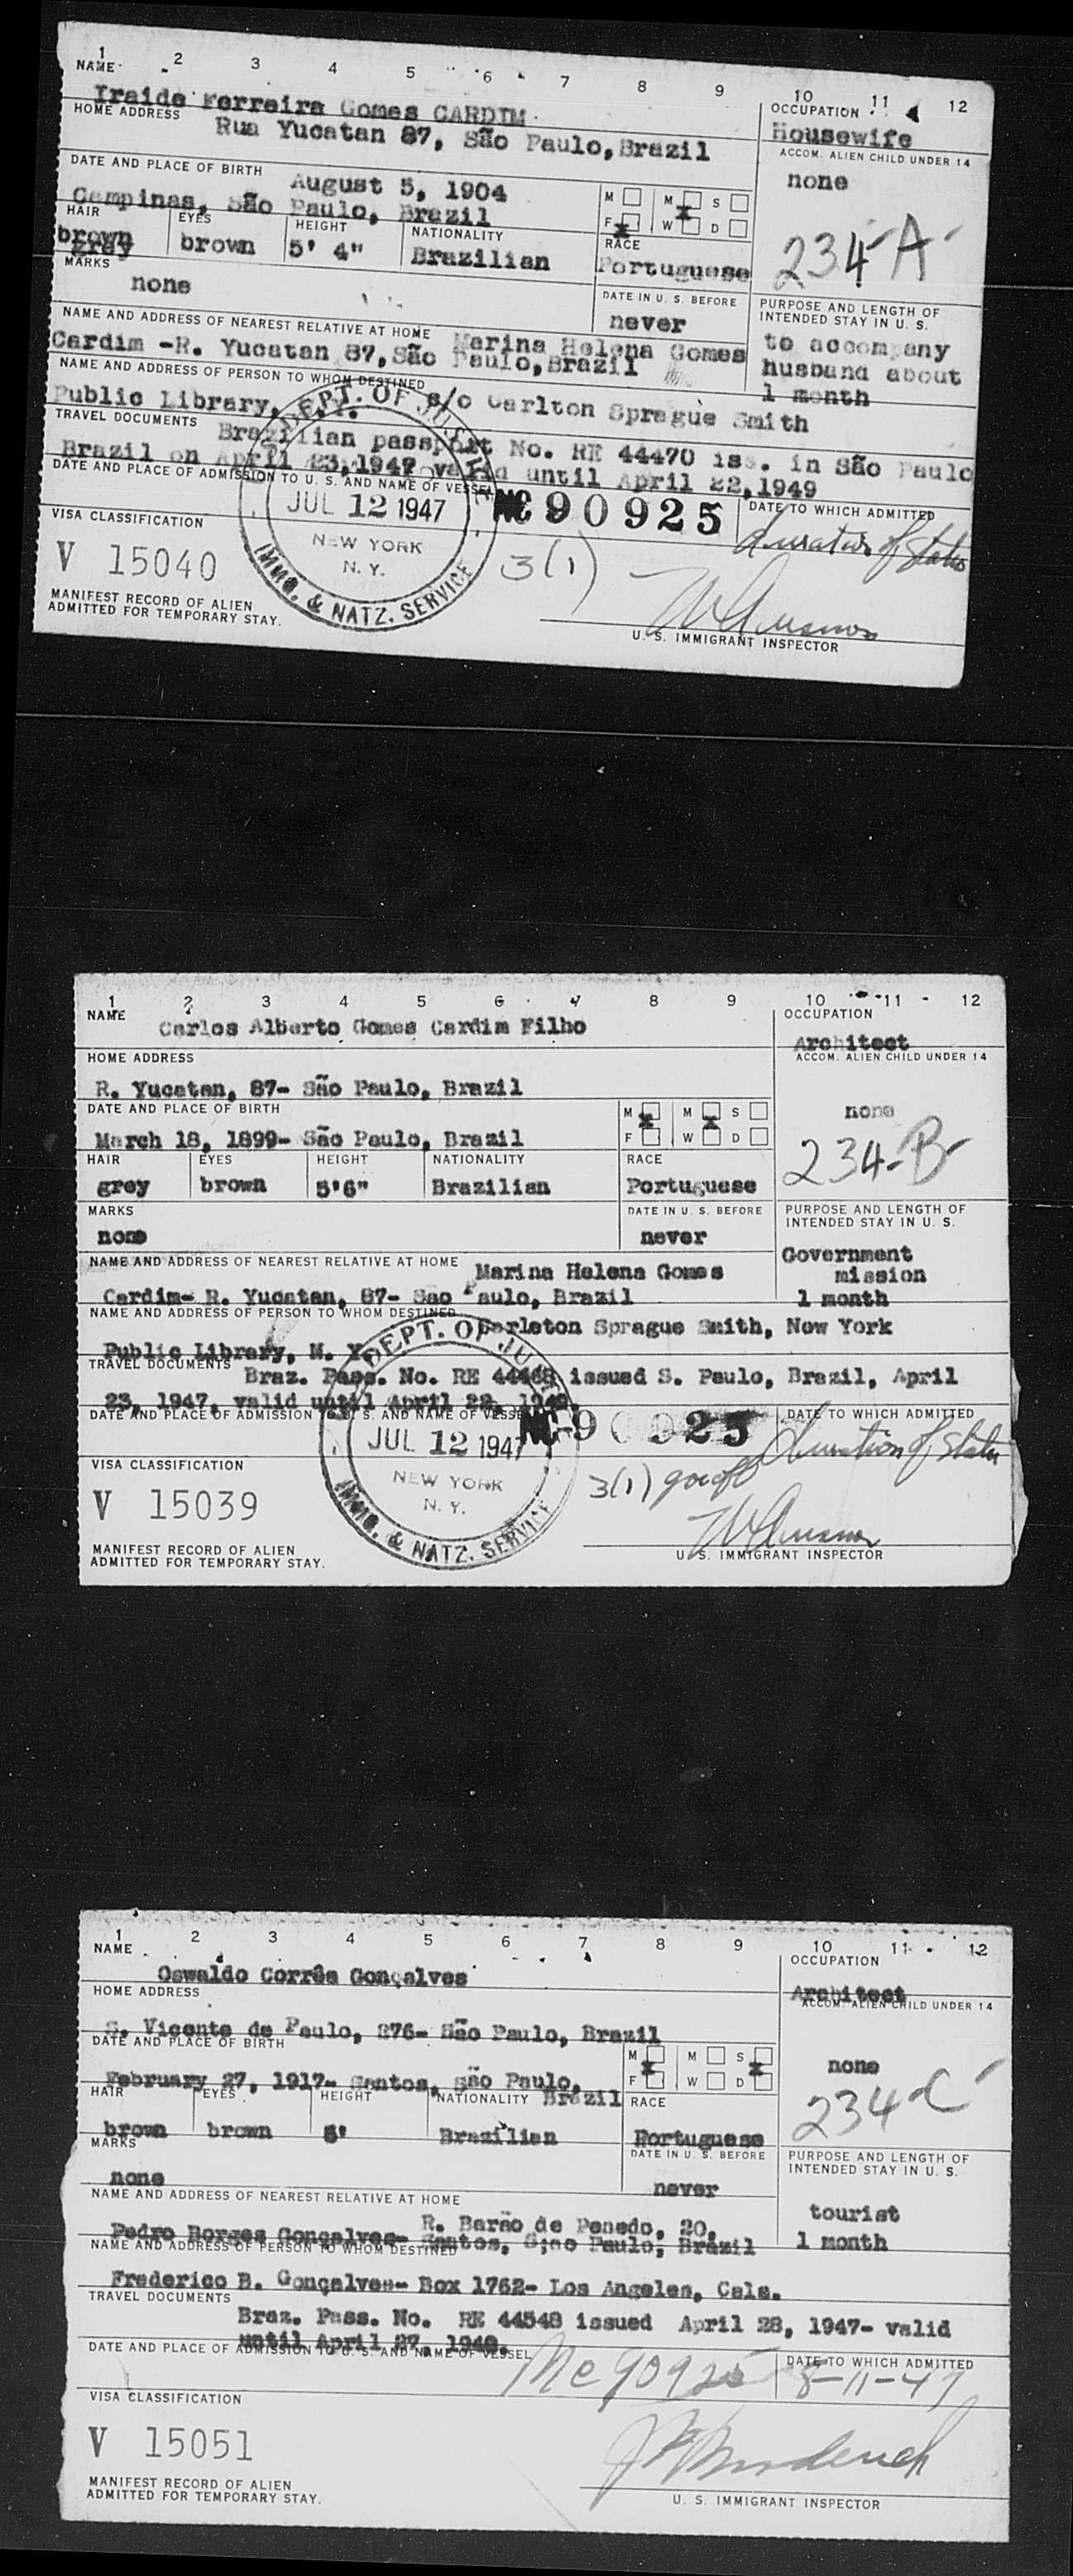 1 2 3 4 5 6 7 8 9 10 11 12
NAME
Iraide Ferreira Gomes CARDIM
OCCUPATION
Housewife
HOME ADDRESS
Rua Yucatan 87, São Paulo, Brazil
ACCOM. ALIEN CHILD UNDER 14
none
DATE AND PLACE OF BIRTH
August 5, 1904
Campinas, São Paulo, Brazil
M M x S
F x W D
234-A
HAIR EYES HEIGHT NATIONALITY RACE
brown
gray brown 5' 4" Brazilian Portuguese
MARKS
none
DATE IN U. S. BEFORE
never
PURPOSE AND LENGTH OF
INTENDED STAY IN U. S.
to accompany
husband about
1 month
NAME AND ADDRESS OF NEAREST RELATIVE AT HOME
Marina Helena Gomes
Cardim -R. Yucatan 87, São Paulo, Brazil
NAME AND ADDRESS OF PERSON TO WHOM DESTINED
c/o Carlton Sprague Smith
Public Library, N.Y.
TRAVEL DOCUMENTS
Brazilian passport No. RE 44470 iss. in São Paulo
Brazil on April 23, 1947 valid until April 22, 1949
DATE AND PLACE OF ADMISSION TO U. S. AND NAME OF VESSEL
DEPT. OF JUSTICE
JUL 12 1947
NEW YORK
N. Y.
IMMG. & NATZ. SERVICE
NC 90925
DATE TO WHICH ADMITTED
duration of status
VISA CLASSIFICATION
3(1)
V 15040
MANIFEST RECORD OF ALIEN
ADMITTED FOR TEMPORARY STAY.
U. S. IMMIGRANT INSPECTOR
1 2 3 4 5 6 7 8 9 10 11 12
NAME
Carlos Alberto Gomes Cardim Filho
OCCUPATION
Architect
HOME ADDRESS
R. Yucatan, 87- São Paulo, Brazil
ACCOM. ALIEN CHILD UNDER 14
none
DATE AND PLACE OF BIRTH
March 18, 1899- São Paulo, Brazil
M x M x S
F W D
234-B
HAIR EYES HEIGHT NATIONALITY RACE
grey brown 5'6" Brazilian Portuguese
MARKS
none
DATE IN U. S. BEFORE
never
PURPOSE AND LENGTH OF
INTENDED STAY IN U. S.
Government
mission
1 month
NAME AND ADDRESS OF NEAREST RELATIVE AT HOME
Marina Helena Gomes
Cardim- R. Yucatan, 87- Sao Paulo, Brazil
NAME AND ADDRESS OF PERSON TO WHOM DESTINED
Carleton Sprague Smith, New York
Public Library, N. Y.
TRAVEL DOCUMENTS
Braz. Pass. No. RE 44468 issued S. Paulo, Brazil, April
23, 1947, valid until April 22, 1949.
DATE AND PLACE OF ADMISSION TO U. S. AND NAME OF VESSEL
DEPT. OF JUSTICE
JUL 12 1947
NEW YORK
N. Y.
IMMG. & NATZ. SERVICE
NC-90925
DATE TO WHICH ADMITTED
duration of status
VISA CLASSIFICATION
3(1)
V 15039
MANIFEST RECORD OF ALIEN
ADMITTED FOR TEMPORARY STAY.
U. S. IMMIGRANT INSPECTOR
1 2 3 4 5 6 7 8 9 10 11 12
NAME
Oswaldo Corrêa Gonçalves
OCCUPATION
Architect
HOME ADDRESS
S. Vicente de Paulo, 276- São Paulo, Brazil
ACCOM. ALIEN CHILD UNDER 14
none
DATE AND PLACE OF BIRTH
February 27, 1917- Santos, São Paulo,
Brazil
M x M S x
F W D
234-C
HAIR EYES HEIGHT NATIONALITY RACE
brown brown Brazilian Portuguese
MARKS
none
DATE IN U. S. BEFORE
never
PURPOSE AND LENGTH OF
INTENDED STAY IN U. S.
tourist
1 month
NAME AND ADDRESS OF NEAREST RELATIVE AT HOME
R. Barão de Penedo, 20,
Pedro Borges Gonçalves- Santos, S;ao Paulo, Brazil
NAME AND ADDRESS OF PERSON TO WHOM DESTINED
Frederico B. Gonçalves- Box 1762- Los Angeles, Cala.
TRAVEL DOCUMENTS
Braz. Pass. No. RE 44548 issued April 28, 1947- valid
until April 27, 1949.
DATE AND PLACE OF ADMISSION TO U. S. AND NAME OF VESSEL
NC 90925
DATE TO WHICH ADMITTED
8-11-47
VISA CLASSIFICATION
V 15051
MANIFEST RECORD OF ALIEN
ADMITTED FOR TEMPORARY STAY.
U. S. IMMIGRANT INSPECTOR